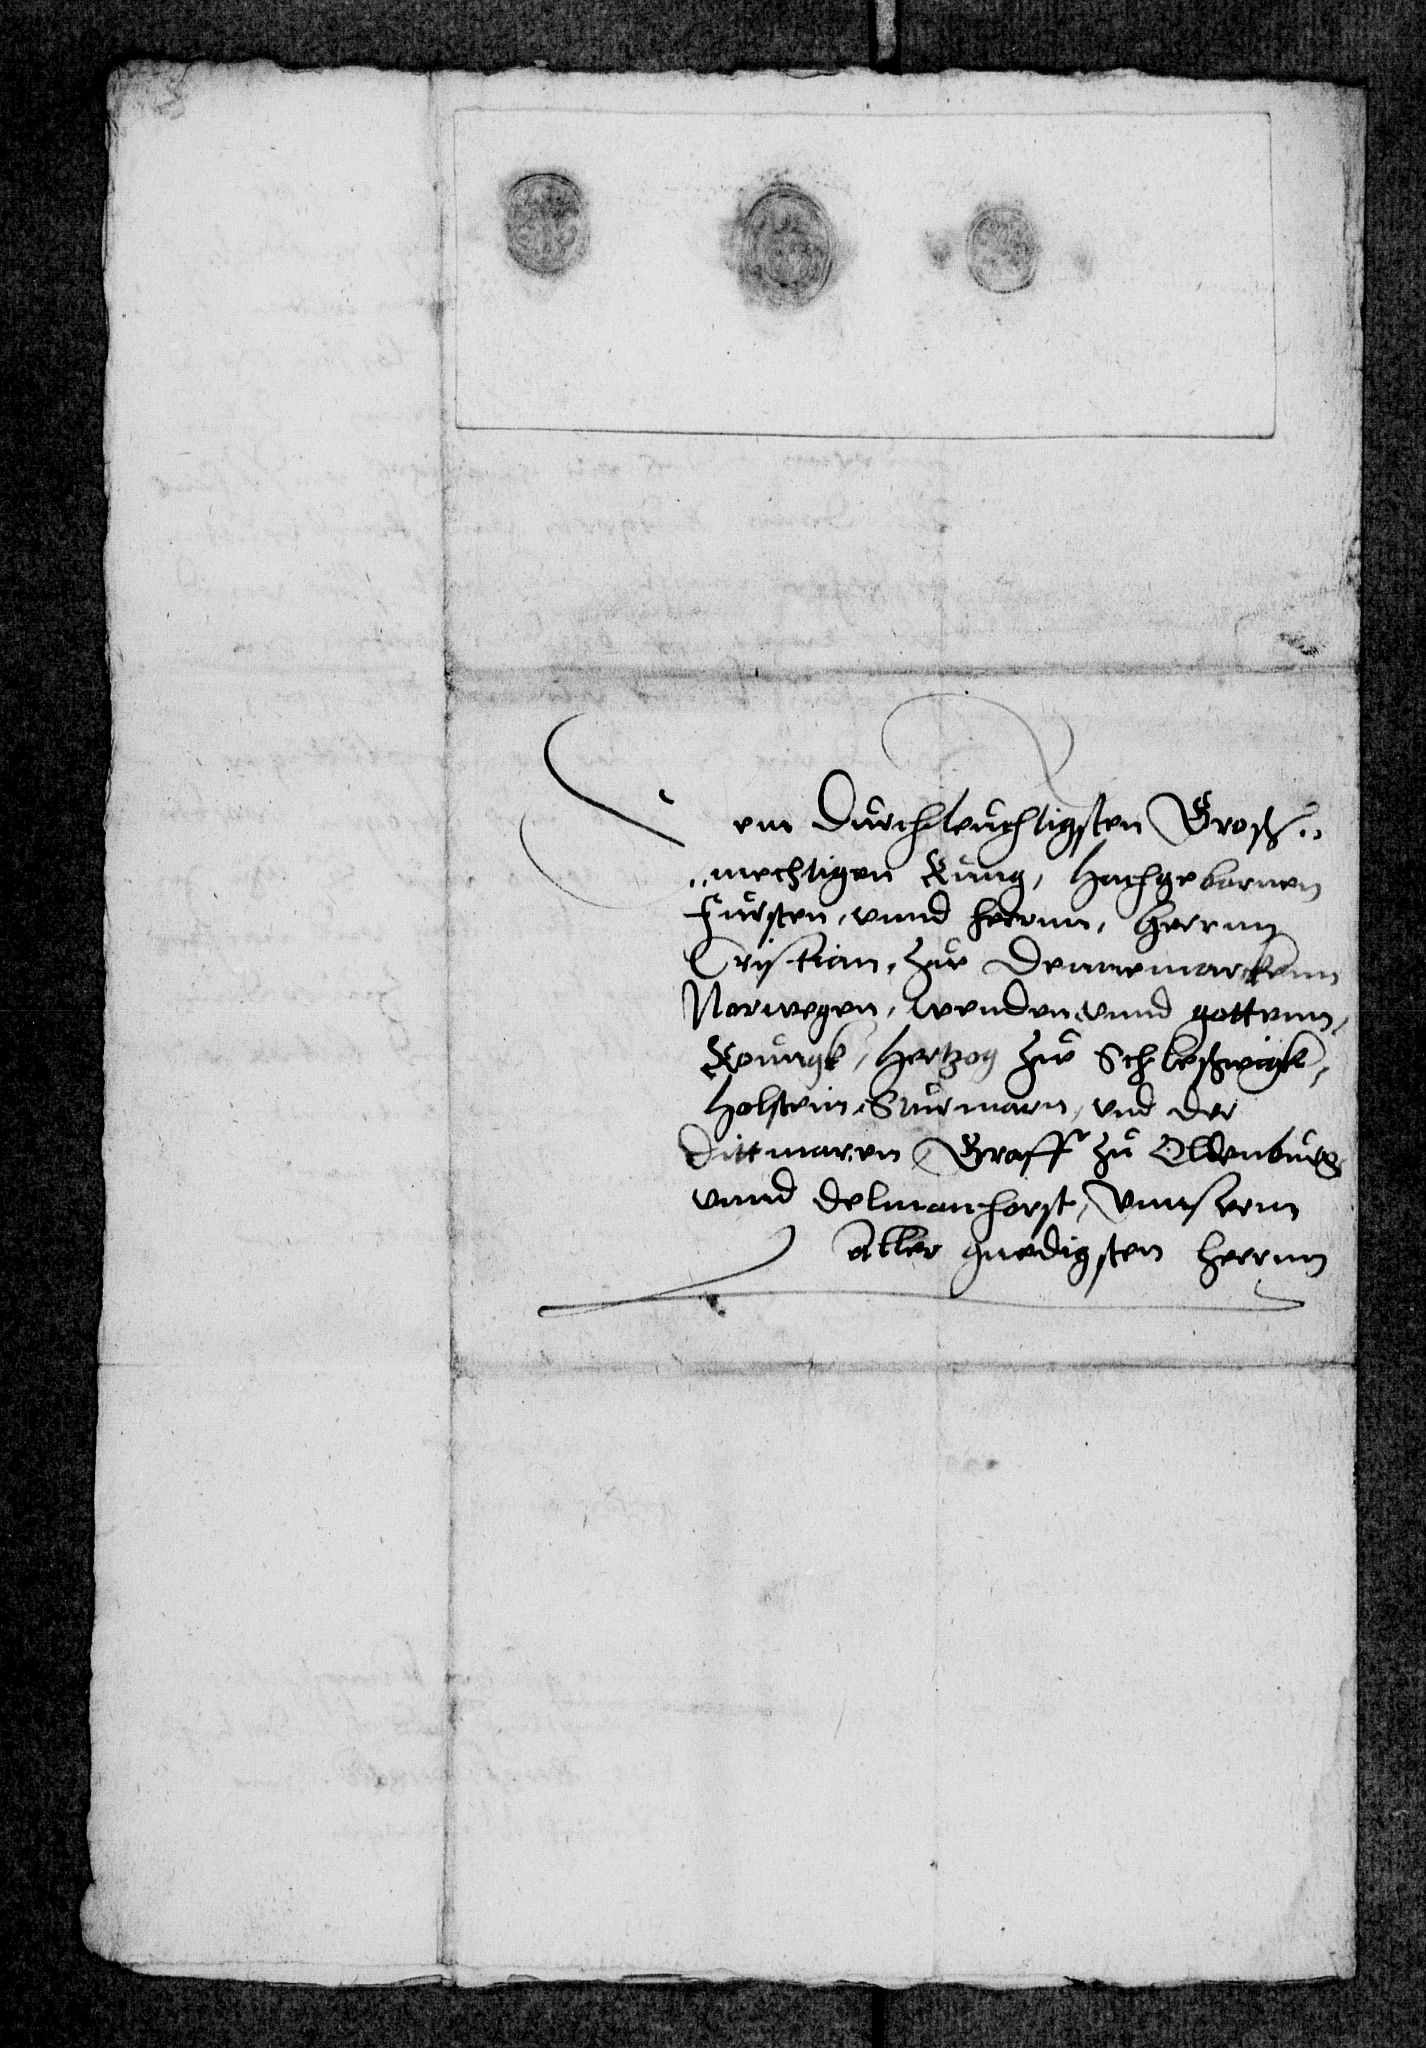 Dem Durchleuchtigsten Groß„
„mechtigen Kunig, Hachgebornen
Fursten, vnnd herrnn, Herrnn
Cristian, zue Dennemarckenn
Norwegen, wenden vnnd gottenn,
Kounigk, Hertzog zue Schleßwigk,
Holstein, Sturmarn, vnd der
Dittmaren Graff zu Oldenburg
vnnd Delmanhorst, Vnnserm
Aller gnedigsten herrnn